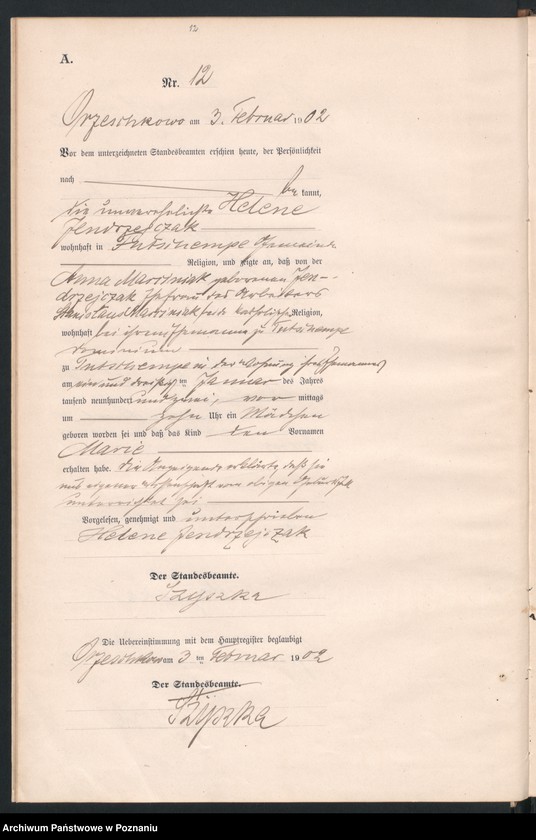 12
A.
Nr. 12
Orzeschkowo am 3. Februar 1902
Vor dem unterzeichneten Standesbeamten erschien heute, der Persönlichkeit
nach be kannt,
die unverehelichte Helene
Jendrzejczak
wohnhaft in Tutschempe Gemeinde
Religion, und zeigte an, daß von der
Anna Marciniak geborenen Jen-
drzejczak Ehefrau des Arbeiters
Stanislaus Marciniak beide katholischer Religion,
wohnhaft bei ihrem Ehemanne zu Tutschempe
Dominium
zu Tutschempe in der Wohnung ihres Ehemannes
am ein und dreißig ten Januar des Jahres
tausend neunhundert und zwei, vor mittags
um zehn Uhr ein Mädchen
geboren worden sei und daß das Kind den Vornamen
Marie
erhalten habe. Die Anzeigende erklärte, daß sie
aus eigener Wissenschaft von obigem Geburtsfall
unterrichtet sei
Vorgelesen, genehmigt und unterschrieben
Helene Jendrzejczak
Der Standesbeamte.
Szyszka
Die Uebereinstimmung mit dem Hauptregister beglaubigt
Orzeschkowo am 3 ten Februar 1902
Der Standesbeamte.
Szyszka
Archiwum Państwowe w Poznaniu